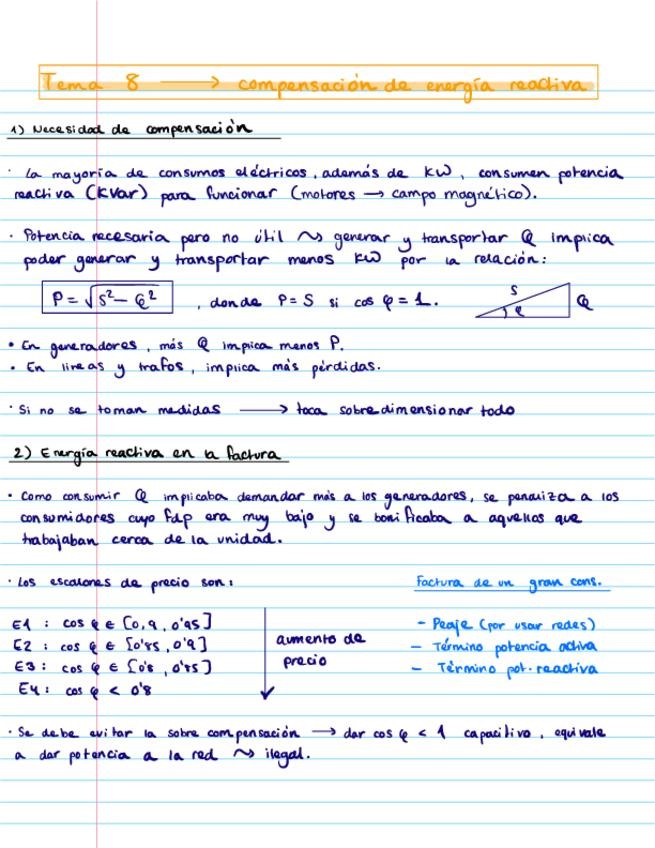 Tema 8 → compensación de energía reactiva
1) Necesidad de compensación
· La mayoría de consumos eléctricos, además de KW, consumen potencia
reactiva (KVar) para funcionar (motores → campo magnético).
· Potencia necesaria pero no útil ~> generar y transportar Q implica
poder generar y transportar menos KW por la relación:
P = √S² - Q² , donde P = S si cos φ = 1. S φ Q
• En generadores, más Q implica menos P.
• En lineas y trafos, implica más pérdidas.
· Si no se toman medidas → toca sobredimensionar todo
2) Energía reactiva en la factura
• Como consumir Q implicaba demandar más a los generadores, se penaliza a los
consumidores cuyo fdp era muy bajo y se bonificaba a aquellos que
trabajaban cerca de la unidad.
· Los escalones de precio son: Factura de un gran cons.
E1 : cos φ ∈ [0,9, 0'95] - Peaje (por usar redes)
E2 : cos φ ∈ [0'85, 0'9] aumento de - Término potencia activa
E3 : cos φ ∈ [0'8, 0'85] precio - Término pot. reactiva
E4 : cos φ < 0'8
· Se debe evitar la sobre compensación → dar cos φ < 1 capacitivo, equivale
a dar potencia a la red ~> ilegal.